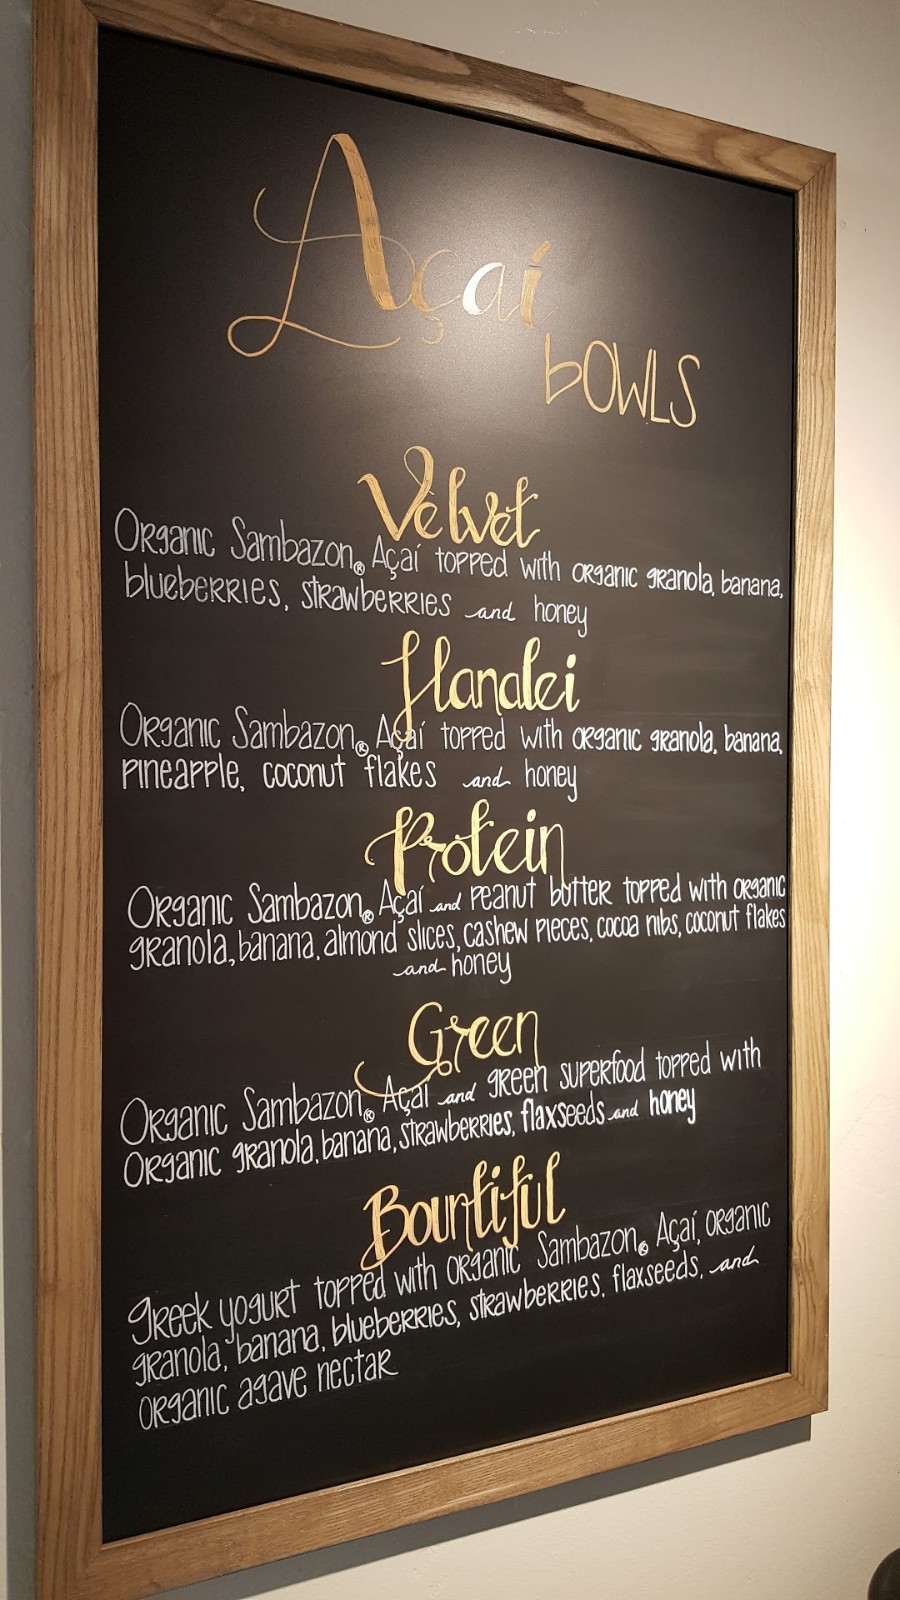 Açaí
bOWLS
Velvet
Organic Sambazon® Açaí topped with organic granola, banana,
blueberries, strawberries and honey
Hanalei
Organic Sambazon® Açaí topped with organic granola, banana,
pineapple, coconut flakes and honey
Protein
Organic Sambazon® Açaí and peanut butter topped with organic
granola, banana, almond slices, cashew pieces, cocoa nibs, coconut flakes
and honey
Green
Organic Sambazon® Açaí and green superfood topped with
Organic granola, banana, strawberries, flaxseeds and honey
Bountiful
greek yogurt topped with organic Sambazon® Açaí, organic
granola, banana, blueberries, strawberries, flaxseeds, and
organic agave nectar